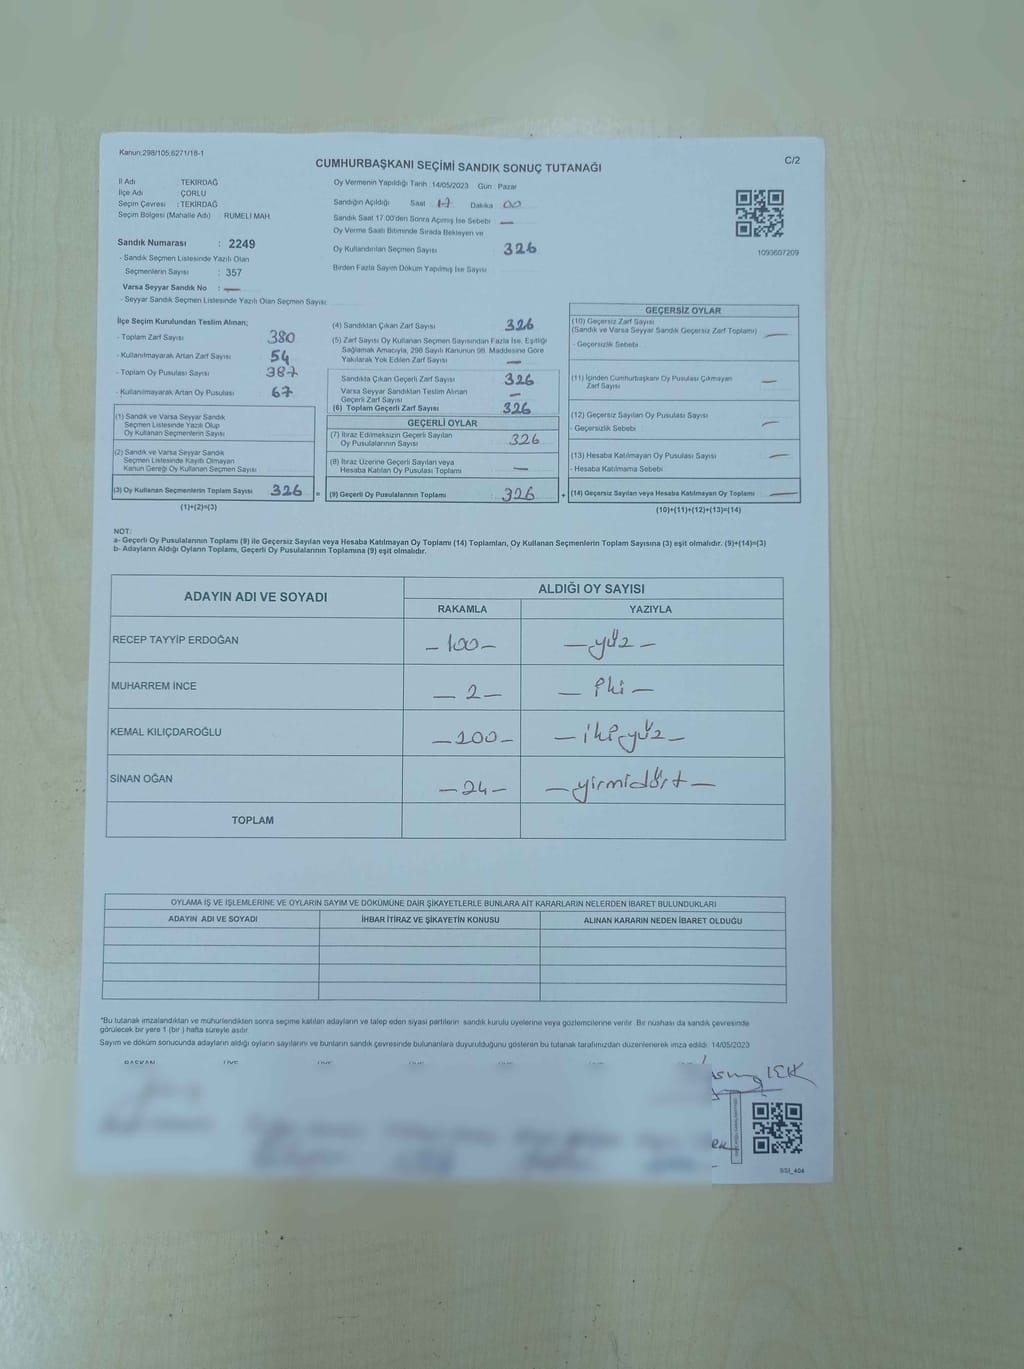 Kanun:298/105;6271/18-1
C/2
CUMHURBAŞKANI SEÇİMİ SANDIK SONUÇ TUTANAĞI
İl Adı : TEKİRDAĞ
İlçe Adı : ÇORLU
Seçim Çevresi : TEKİRDAĞ
Seçim Bölgesi (Mahalle Adı) : RUMELİ MAH.
Sandık Numarası : 2249
- Sandık Seçmen Listesinde Yazılı Olan
Seçmenlerin Sayısı : 357
Varsa Seyyar Sandık No : —
- Seyyar Sandık Seçmen Listesinde Yazılı Olan Seçmen Sayısı:
Oy Vermenin Yapıldığı Tarih : 14/05/2023 Gün : Pazar
Sandığın Açıldığı Saat 17 Dakika 00
Sandık Saat 17.00'den Sonra Açılmış İse Sebebi —
Oy Verme Saati Bitiminde Sırada Bekleyen ve
Oy Kullandırılan Seçmen Sayısı 326
Birden Fazla Sayım Döküm Yapılmış İse Sayısı
1093607209
İlçe Seçim Kurulundan Teslim Alınan;
- Toplam Zarf Sayısı 380
- Kullanılmayarak Artan Zarf Sayısı 54
- Toplam Oy Pusulası Sayısı 387
- Kullanılmayarak Artan Oy Pusulası 67
(1) Sandık ve Varsa Seyyar Sandık
Seçmen Listesinde Yazılı Olup
Oy Kullanan Seçmenlerin Sayısı
(2) Sandık ve Varsa Seyyar Sandık
Seçmen Listesinde Kayıtlı Olmayan
Kanun Gereği Oy Kullanan Seçmen Sayısı
(3) Oy Kullanan Seçmenlerin Toplam Sayısı 326
(1)+(2)=(3)
(4) Sandıktan Çıkan Zarf Sayısı 326
(5) Zarf Sayısı Oy Kullanan Seçmen Sayısından Fazla İse, Eşitliği
Sağlamak Amacıyla, 298 Sayılı Kanunun 98. Maddesine Göre
Yakılarak Yok Edilen Zarf Sayısı —
Sandıkta Çıkan Geçerli Zarf Sayısı 326
Varsa Seyyar Sandıktan Teslim Alınan
Geçerli Zarf Sayısı —
(6) Toplam Geçerli Zarf Sayısı 326
GEÇERLİ OYLAR
(7) İtiraz Edilmeksizin Geçerli Sayılan
Oy Pusulalarının Sayısı 326
(8) İtiraz Üzerine Geçerli Sayılan veya
Hesaba Katılan Oy Pusulası Toplamı —
= (9) Geçerli Oy Pusulalarının Toplamı 326
GEÇERSİZ OYLAR
(10) Geçersiz Zarf Sayısı
(Sandık ve Varsa Seyyar Sandık Geçersiz Zarf Toplamı) —
- Geçersizlik Sebebi
(11) İçinden Cumhurbaşkanı Oy Pusulası Çıkmayan
Zarf Sayısı —
(12) Geçersiz Sayılan Oy Pusulası Sayısı
- Geçersizlik Sebebi —
(13) Hesaba Katılmayan Oy Pusulası Sayısı —
- Hesaba Katılmama Sebebi
+ (14) Geçersiz Sayılan veya Hesaba Katılmayan Oy Toplamı —
(10)+(11)+(12)+(13)=(14)
NOT:
a- Geçerli Oy Pusulalarının Toplamı (9) ile Geçersiz Sayılan veya Hesaba Katılmayan Oy Toplamı (14) Toplamları, Oy Kullanan Seçmenlerin Toplam Sayısına (3) eşit olmalıdır. (9)+(14)=(3)
b- Adayların Aldığı Oyların Toplamı, Geçerli Oy Pusulalarının Toplamına (9) eşit olmalıdır.
ADAYIN ADI VE SOYADI
ALDIĞI OY SAYISI
RAKAMLA YAZIYLA
RECEP TAYYİP ERDOĞAN — 100 — — yüz —
MUHARREM İNCE — 2 — — İki —
KEMAL KILIÇDAROĞLU — 200 — — ikiyüz —
SİNAN OĞAN — 24 — — yirmidört —
TOPLAM
OYLAMA İŞ VE İŞLEMLERİNE VE OYLARIN SAYIM VE DÖKÜMÜNE DAİR ŞİKAYETLERLE BUNLARA AİT KARARLARIN NELERDEN İBARET BULUNDUKLARI
ADAYIN ADI VE SOYADI İHBAR İTİRAZ VE ŞİKAYETİN KONUSU ALINAN KARARIN NEDEN İBARET OLDUĞU
*Bu tutanak imzalandıktan ve mühürlendikten sonra seçime katılan adayların ve talep eden siyasi partilerin sandık kurulu üyelerine veya gözlemcilerine verilir. Bir nüshası da sandık çevresinde
görülecek bir yere 1 (bir ) hafta süreyle asılır.
Sayım ve döküm sonucunda adayların aldığı oyların sayılarını ve bunların sandık çevresinde bulunanlara duyurulduğunu gösteren bu tutanak tarafımızdan düzenlenerek imza edildi. 14/05/2023
BAŞKAN ÜYE ÜYE ÜYE ÜYE
SSI_404